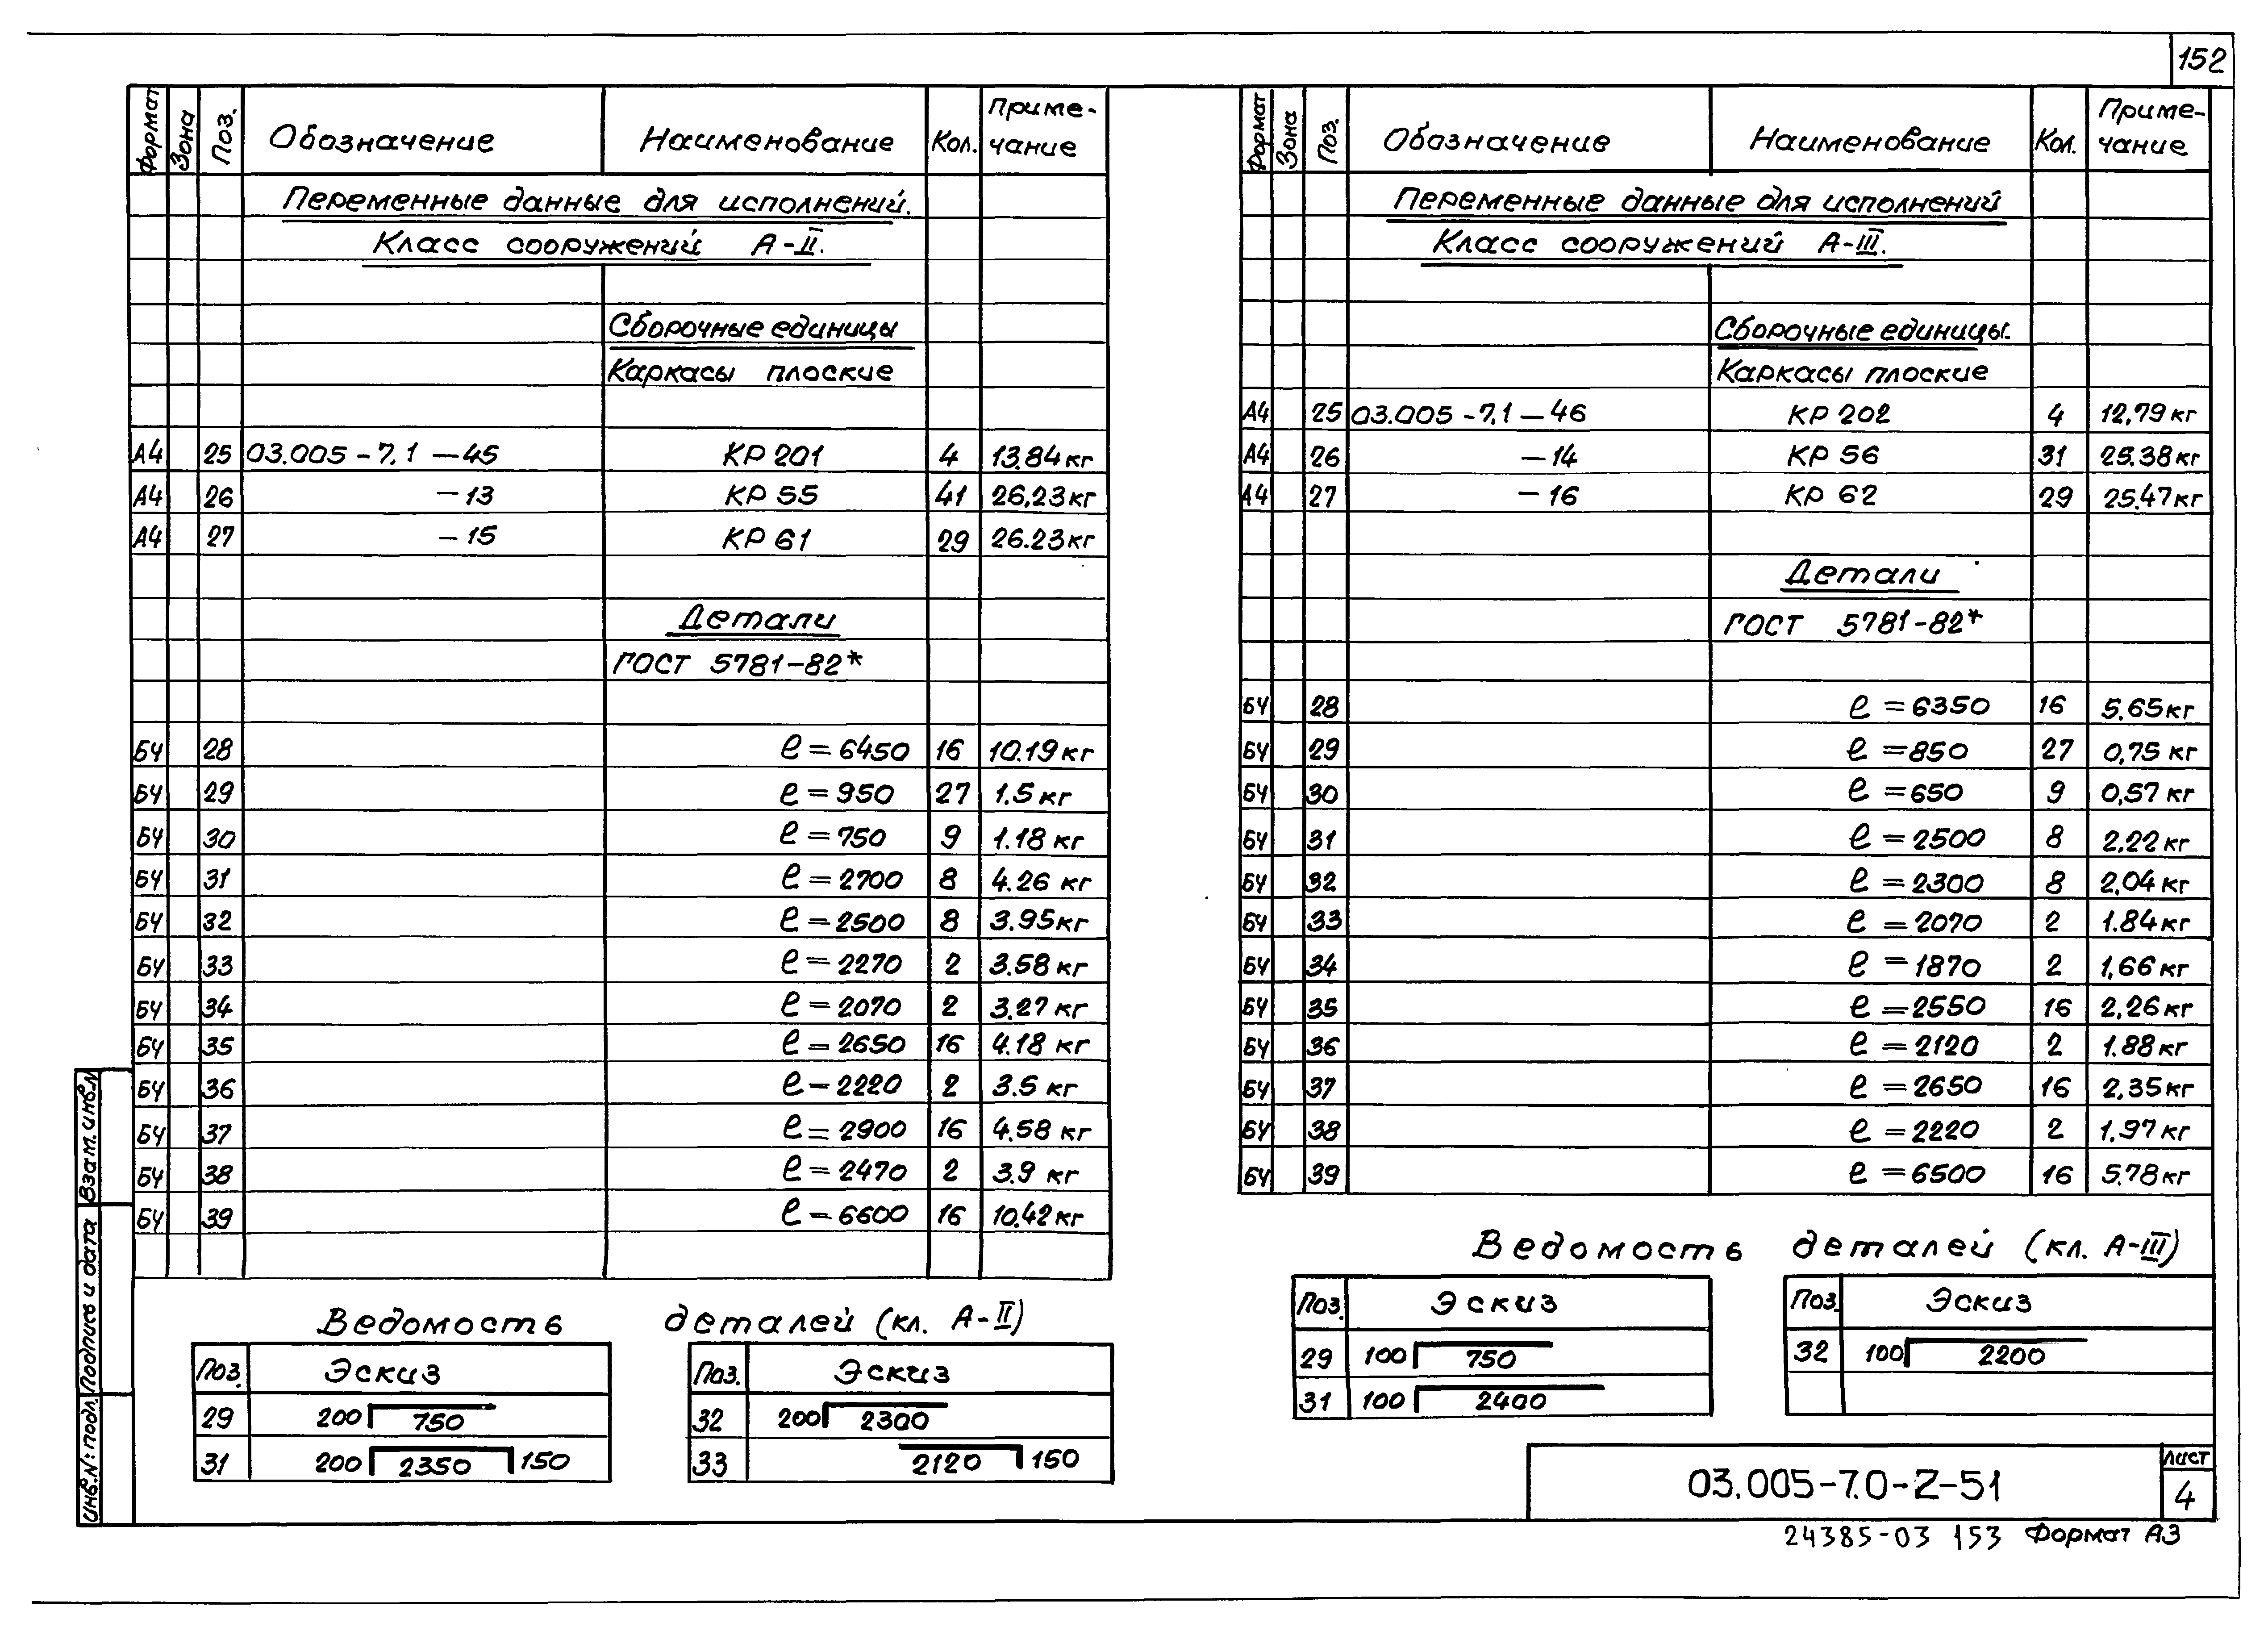 152
Формат Зона Поз. Обозначение Наименование Кол. Примечание
Переменные данные для исполнений.
Класс сооружений А-II.
Сборочные единицы
Каркасы плоские
А4 25 03.005-7.1-45 КР 201 4 13.84кг
А4 26 -13 КР 55 41 26,23кг
А4 27 -15 КР 61 29 26.23кг
Детали
ГОСТ 5781-82*
БЧ 28 ℓ=6450 16 10.19кг
БЧ 29 ℓ=950 27 1.5кг
БЧ 30 ℓ=750 9 1.18кг
БЧ 31 ℓ=2700 8 4.26 кг
БЧ 32 ℓ=2500 8 3.95кг
БЧ 33 ℓ=2270 2 3.58кг
БЧ 34 ℓ=2070 2 3.27кг
БЧ 35 ℓ=2650 16 4.18 кг
БЧ 36 ℓ=2220 2 3.5 кг
БЧ 37 ℓ=2900 16 4.58 кг
БЧ 38 ℓ=2470 2 3.9 кг
БЧ 39 ℓ=6600 16 10.42кг
Ведомость деталей (кл. А-II)
Поз. Эскиз Поз. Эскиз
29 200 750 32 200 2300
31 200 2350 150 33 2120 150
Формат Зона Поз. Обозначение Наименование Кол. Примечание
Переменные данные для исполнений
Класс сооружений А-III.
Сборочные единицы.
Каркасы плоские
А4 25 03.005-7.1-46 КР 202 4 12,79кг
А4 26 -14 КР 56 31 25.38кг
А4 27 -16 КР 62 29 25.47кг
Детали
ГОСТ 5781-82*
БЧ 28 ℓ=6350 16 5.65кг
БЧ 29 ℓ=850 27 0,75 кг
БЧ 30 ℓ=650 9 0,57 кг
БЧ 31 ℓ=2500 8 2,22кг
БЧ 32 ℓ=2300 8 2,04кг
БЧ 33 ℓ=2070 2 1.84кг
БЧ 34 ℓ=1870 2 1,66кг
БЧ 35 ℓ=2550 16 2,26кг
БЧ 36 ℓ=2120 2 1.88кг
БЧ 37 ℓ=2650 16 2,35кг
БЧ 38 ℓ=2220 2 1.97кг
БЧ 39 ℓ=6500 16 5.78кг
Ведомость деталей (кл. А-III)
Поз. Эскиз Поз. Эскиз
29 100 750 32 100 2200
31 100 2400
Взам. инв.N
Подпись и дата
Инв.N: подл.
03.005-7.0-2-51
Лист
4
24385-03 153 Формат А3